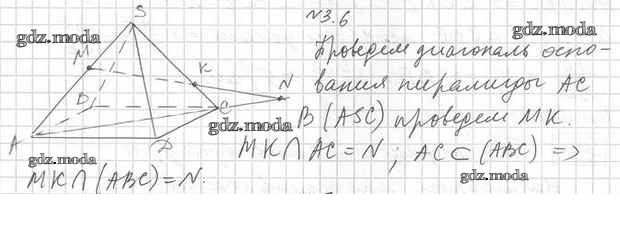 N3.6
Проведём диагональ осно-
вания пирамиды AC
В (ASC) проведём MK.
MK ∩ AC = N ; AC ⊂ (ABC) =>
MK ∩ (ABC) = N.
S
M
K
N
B
C
A
D
gdz.moda
gdz.moda
gdz.moda
gdz.moda
gdz.moda